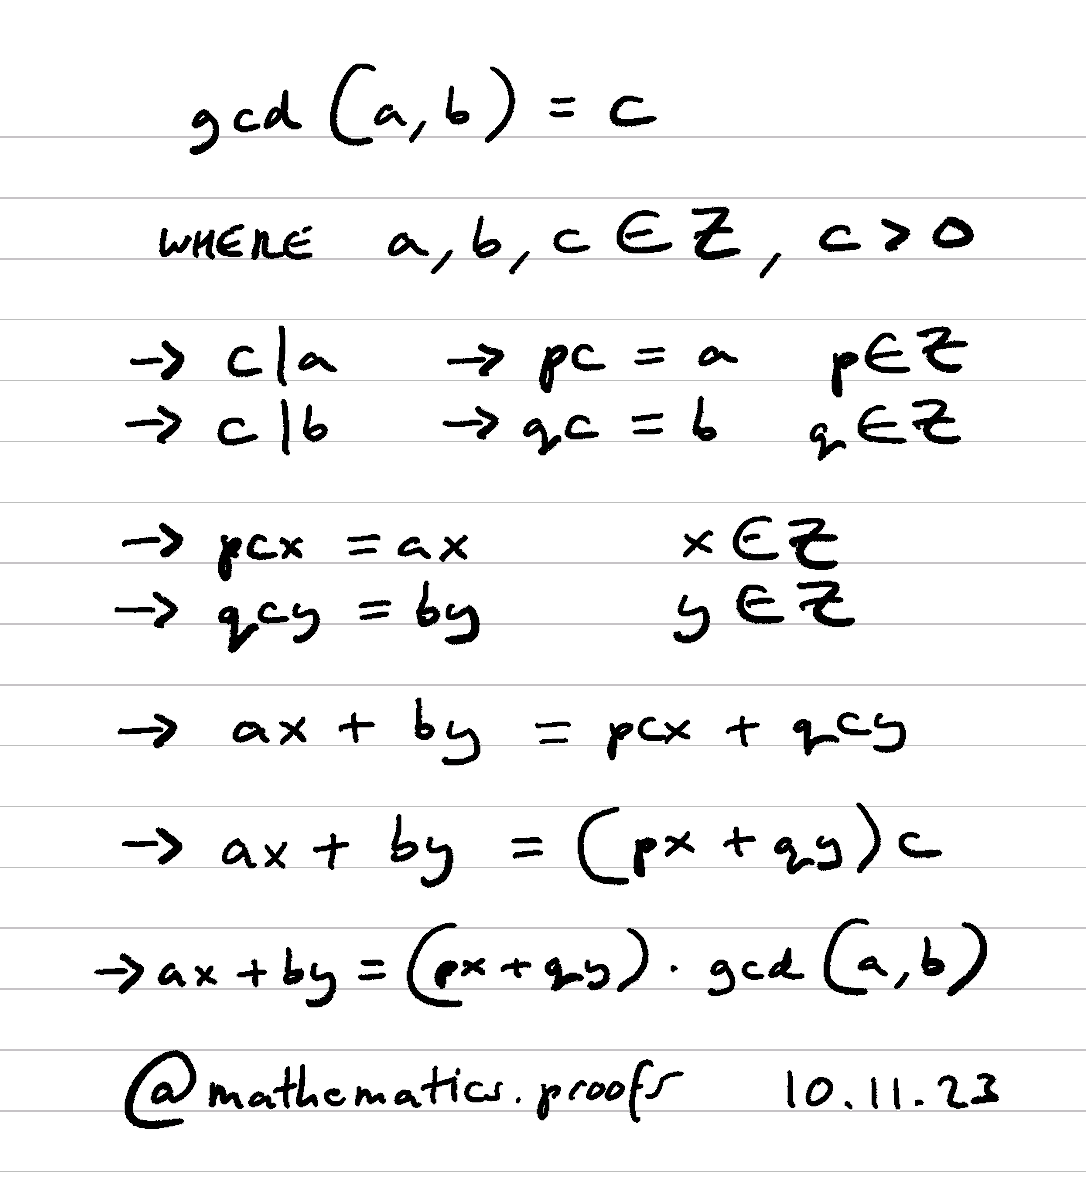 gcd (a, b) = c
WHERE a, b, c ∈ Z, c > 0
→ c | a → pc = a p ∈ Z
→ c | b → qc = b q ∈ Z
→ pcx = ax x ∈ Z
→ qcy = by y ∈ Z
→ ax + by = pcx + qcy
→ ax + by = (px + qy) c
→ ax + by = (px + qy) · gcd (a, b)
@mathematics.proofs 10.11.23